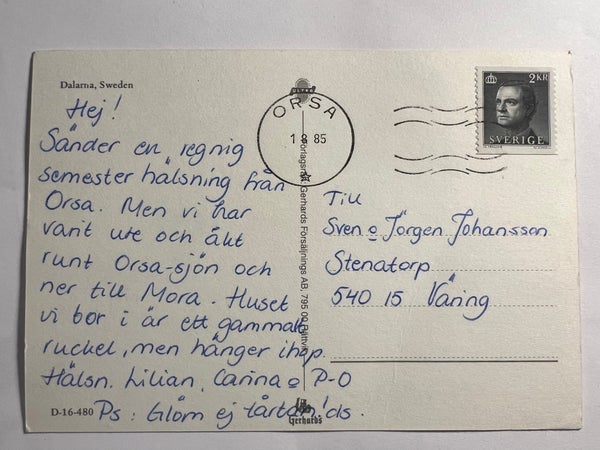 Dalarna, Sweden
Hej!
Sänder en regnig
semester hälsning från
Orsa. Men vi har
varit ute och åkt
runt Orsa-sjön och
ner till Mora. Huset
vi bor i är ett gammalt
ruckel, men hänger ihop.
Hälsn. Lilian, Carina o P-O
Ps: Glöm ej tårtan! ds.
D-16-480
ULTRA
ORSA
1 8 85
Förlagsrätt Gerhards Försäljnings AB, 795 00 Rättvik
Gerhards
2 KR
SVERIGE
Till
Sven o Jörgen Johansson
Stenatorp
540 15 Väring